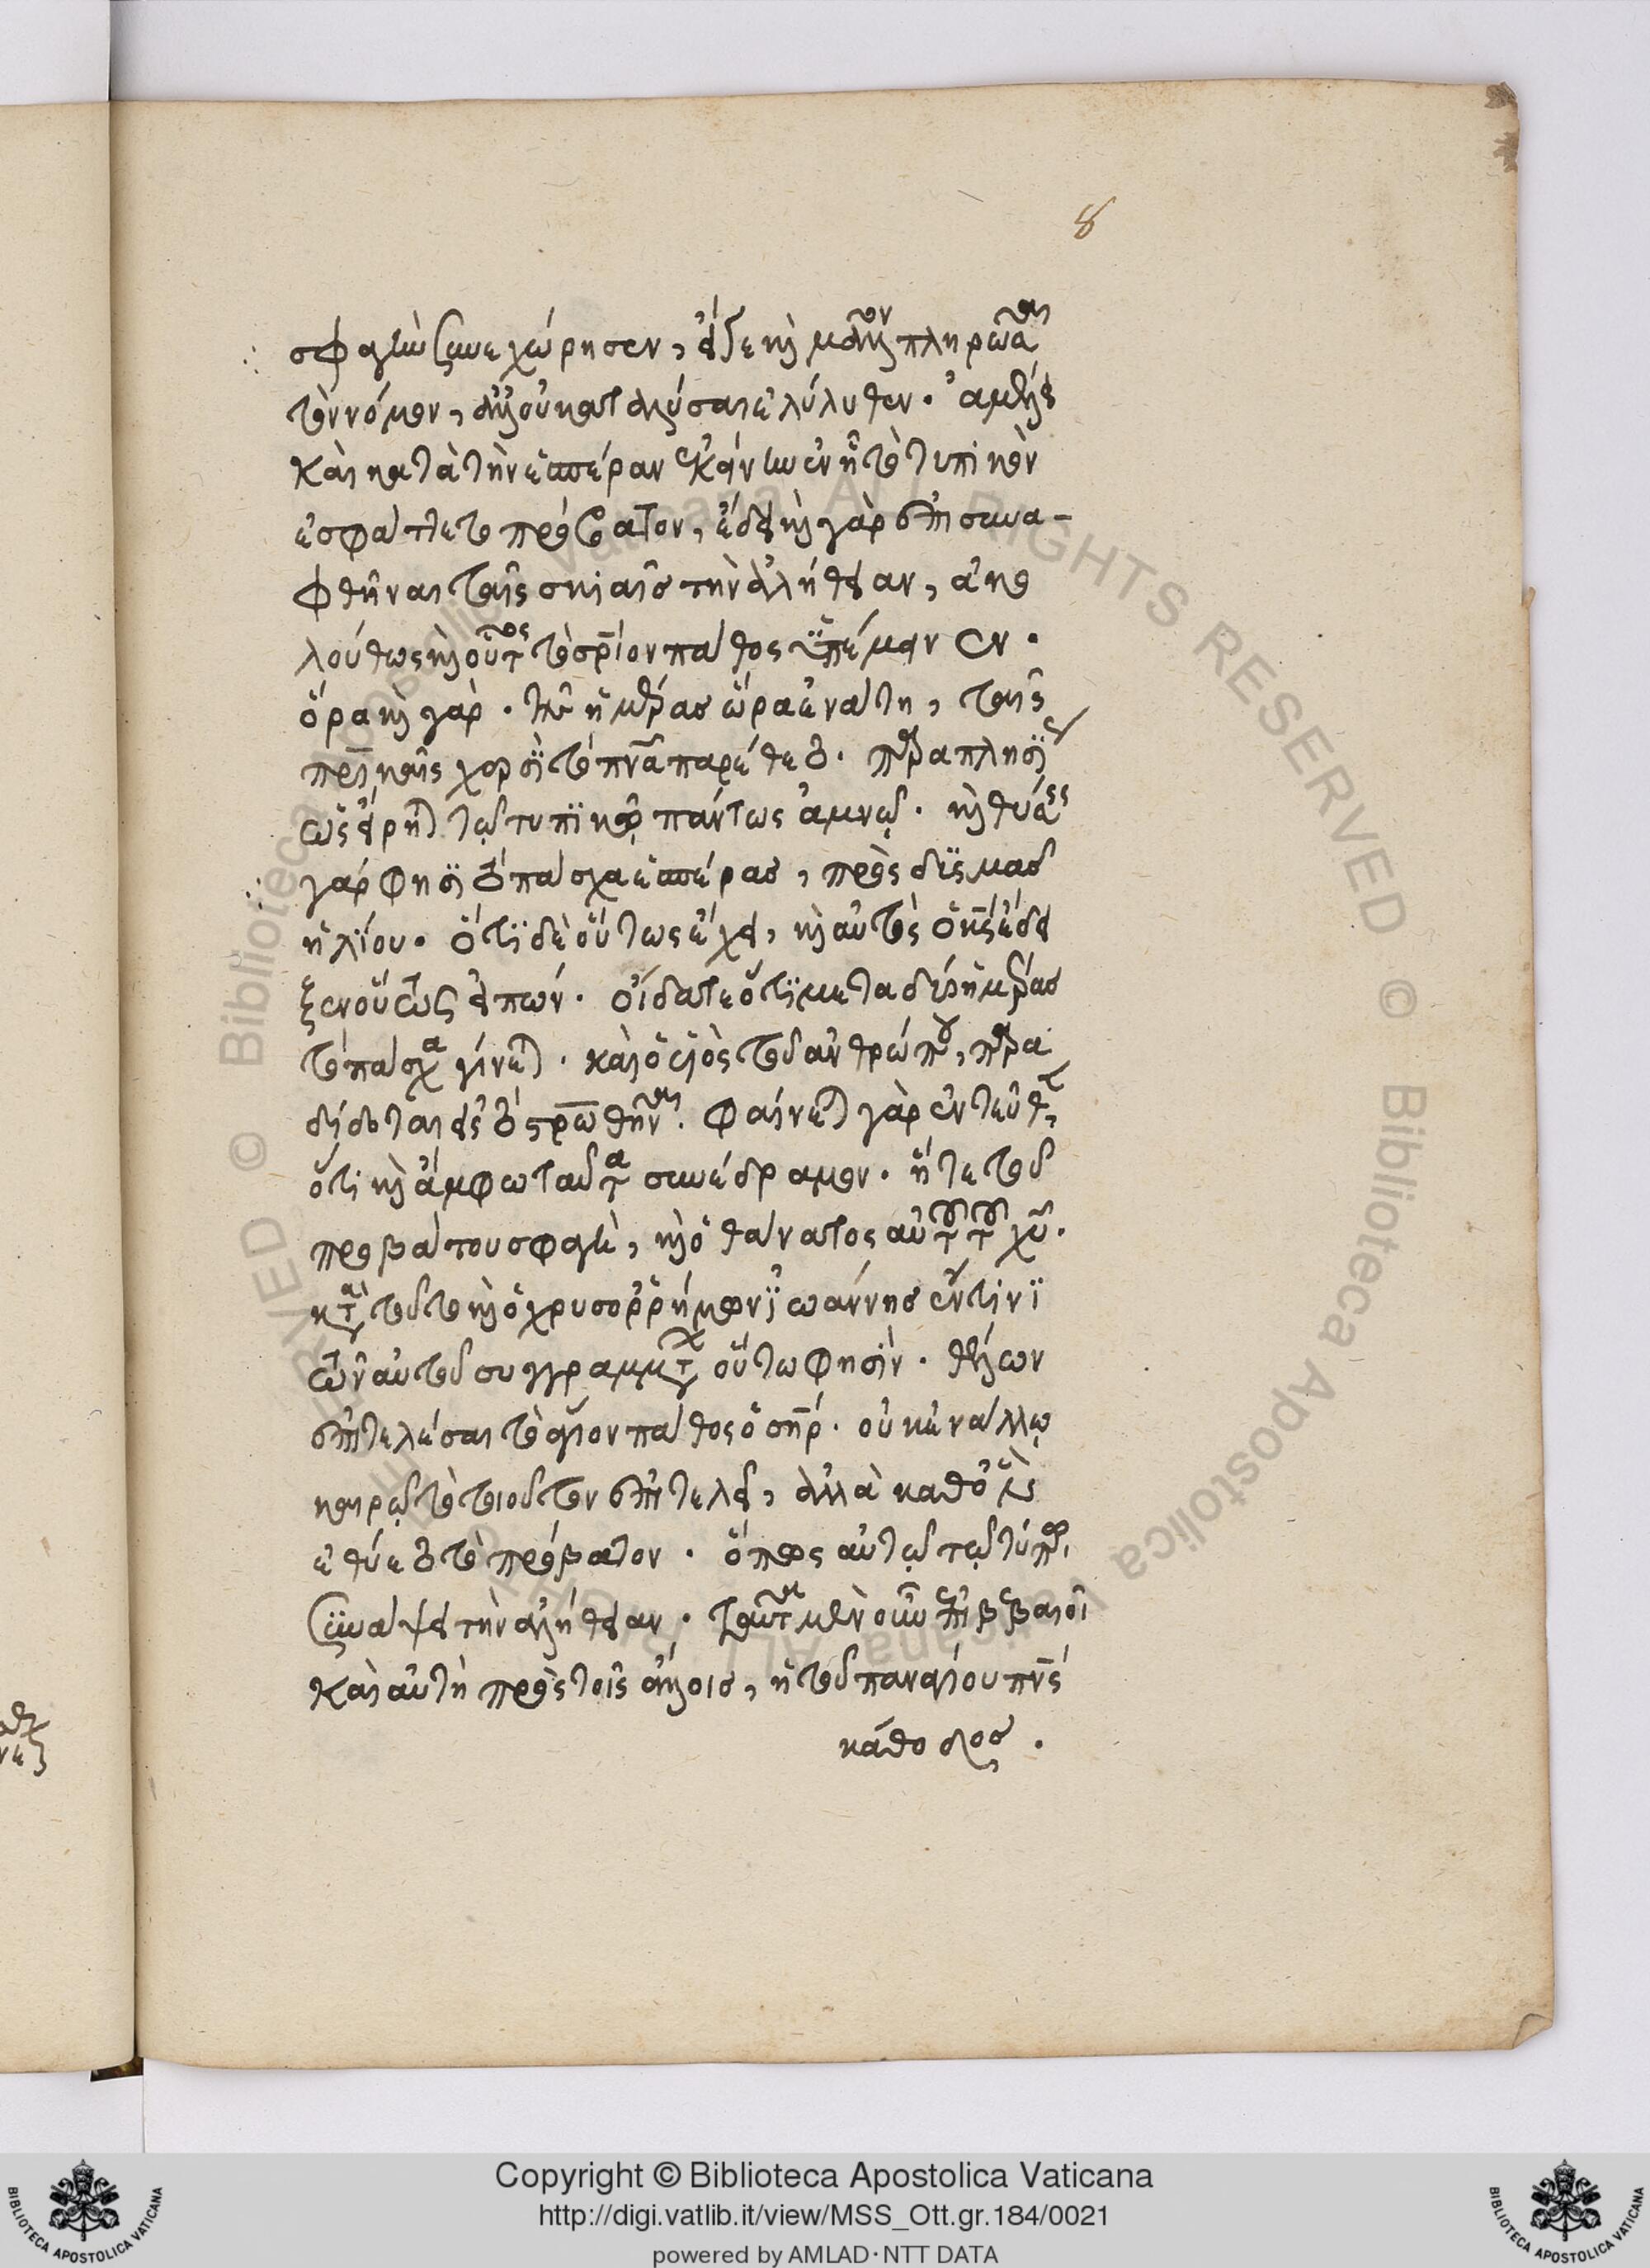 8
σφαγὴν συνεχώρησεν, εἴ γε καὶ μᾶλλον πληρῶσαι
τὸν νόμον, ἀλλ' οὐ καταλῦσαι ἐλήλυθεν. ἀμέλει
καὶ κατὰ τὴν ἑσπέραν ἐκείνην ἐν ᾗ τὸ τυπικὸν
ἐσφάττετο πρόβατον, ἔδει καὶ γὰρ ἐπισυνα-
φθῆναι ταῖς σκιαῖς τὴν ἀλήθειαν, ἀκο
λούθως καὶ οὗτος τὸ σρίον πάθος ὑπέμεινεν.
ὅρα καὶ γάρ. τῆς ἡμέρας ὥρα ἐνάτη, ταῖς
πρικαῖς χερσὶ τὸ πνα παρέθετο. παραπλησί
ως εἴρηται τῷ τυπικῷ πάντως ἀμνῷ. καὶ θύσεις
γάρ φησι τὸ πάσχα ἑσπέρας, πρὸς δυσμὰς
ἡλίου. ὅτι δὲ οὕτως ἔχει, καὶ αὐτὸς ὁ κς ἔδει
ξεν οὕτως εἰπών. οἴδατε ὅτι μετὰ δύο ἡμέρας
τὸ πάσχα γίνεται. καὶ ὁ υἱὸς τοῦ ἀνθρώπου, παρα
δίδοται εἰς τὸ στρωθῆναι. φαίνεται γὰρ ἐντεῦθεν
ὅτι καὶ ἄμφω ταῦτα συνέδραμον. ἥ τε τοῦ
προβάτου σφαγὴ, καὶ ὁ θάνατος αὐτοῦ τοῦ χυ.
κατὰ τοῦτο καὶ ὁ χρυσορρήμων ἰωάννης ἔν τινι
τῶν αὐτοῦ συγγραμμάτων οὕτω φησίν. θέλων
ἐπιτελέσαι τὸ ἅγιον πάθος ὁ σηρ. οὐκ ἐν ἄλλῳ
καιρῷ τὸ τοιοῦτον ἐπιτελεῖ, ἀλλὰ καθ' ὃν
ἐθύετο τὸ πρόβατον. ὅπως αὐτῷ τῷ τύπῳ
συνάψει τὴν ἀλήθειαν. ταῦτα μὲν οὖν
καὶ αὐτὴ πρὸς τοῖς ἄλλοις, ἡ τοῦ παναγίου πνς
κάθοδος.
Copyright © Biblioteca Apostolica Vaticana
http://digi.vatlib.it/view/MSS_Ott.gr.184/0021
powered by AMLAD·NTT DATA